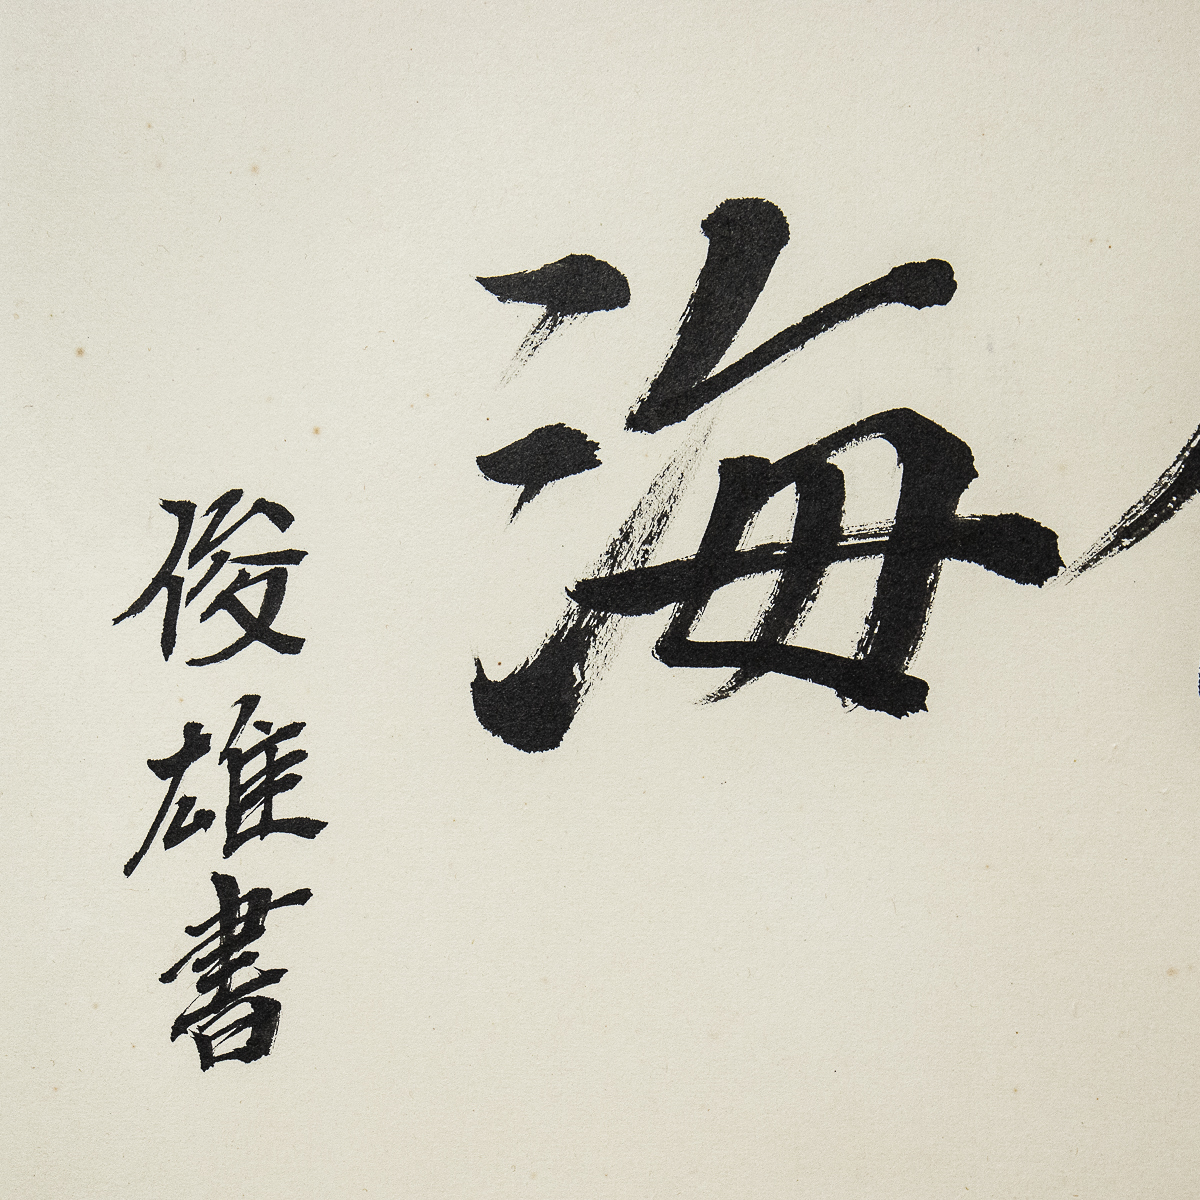 海
俊雄書